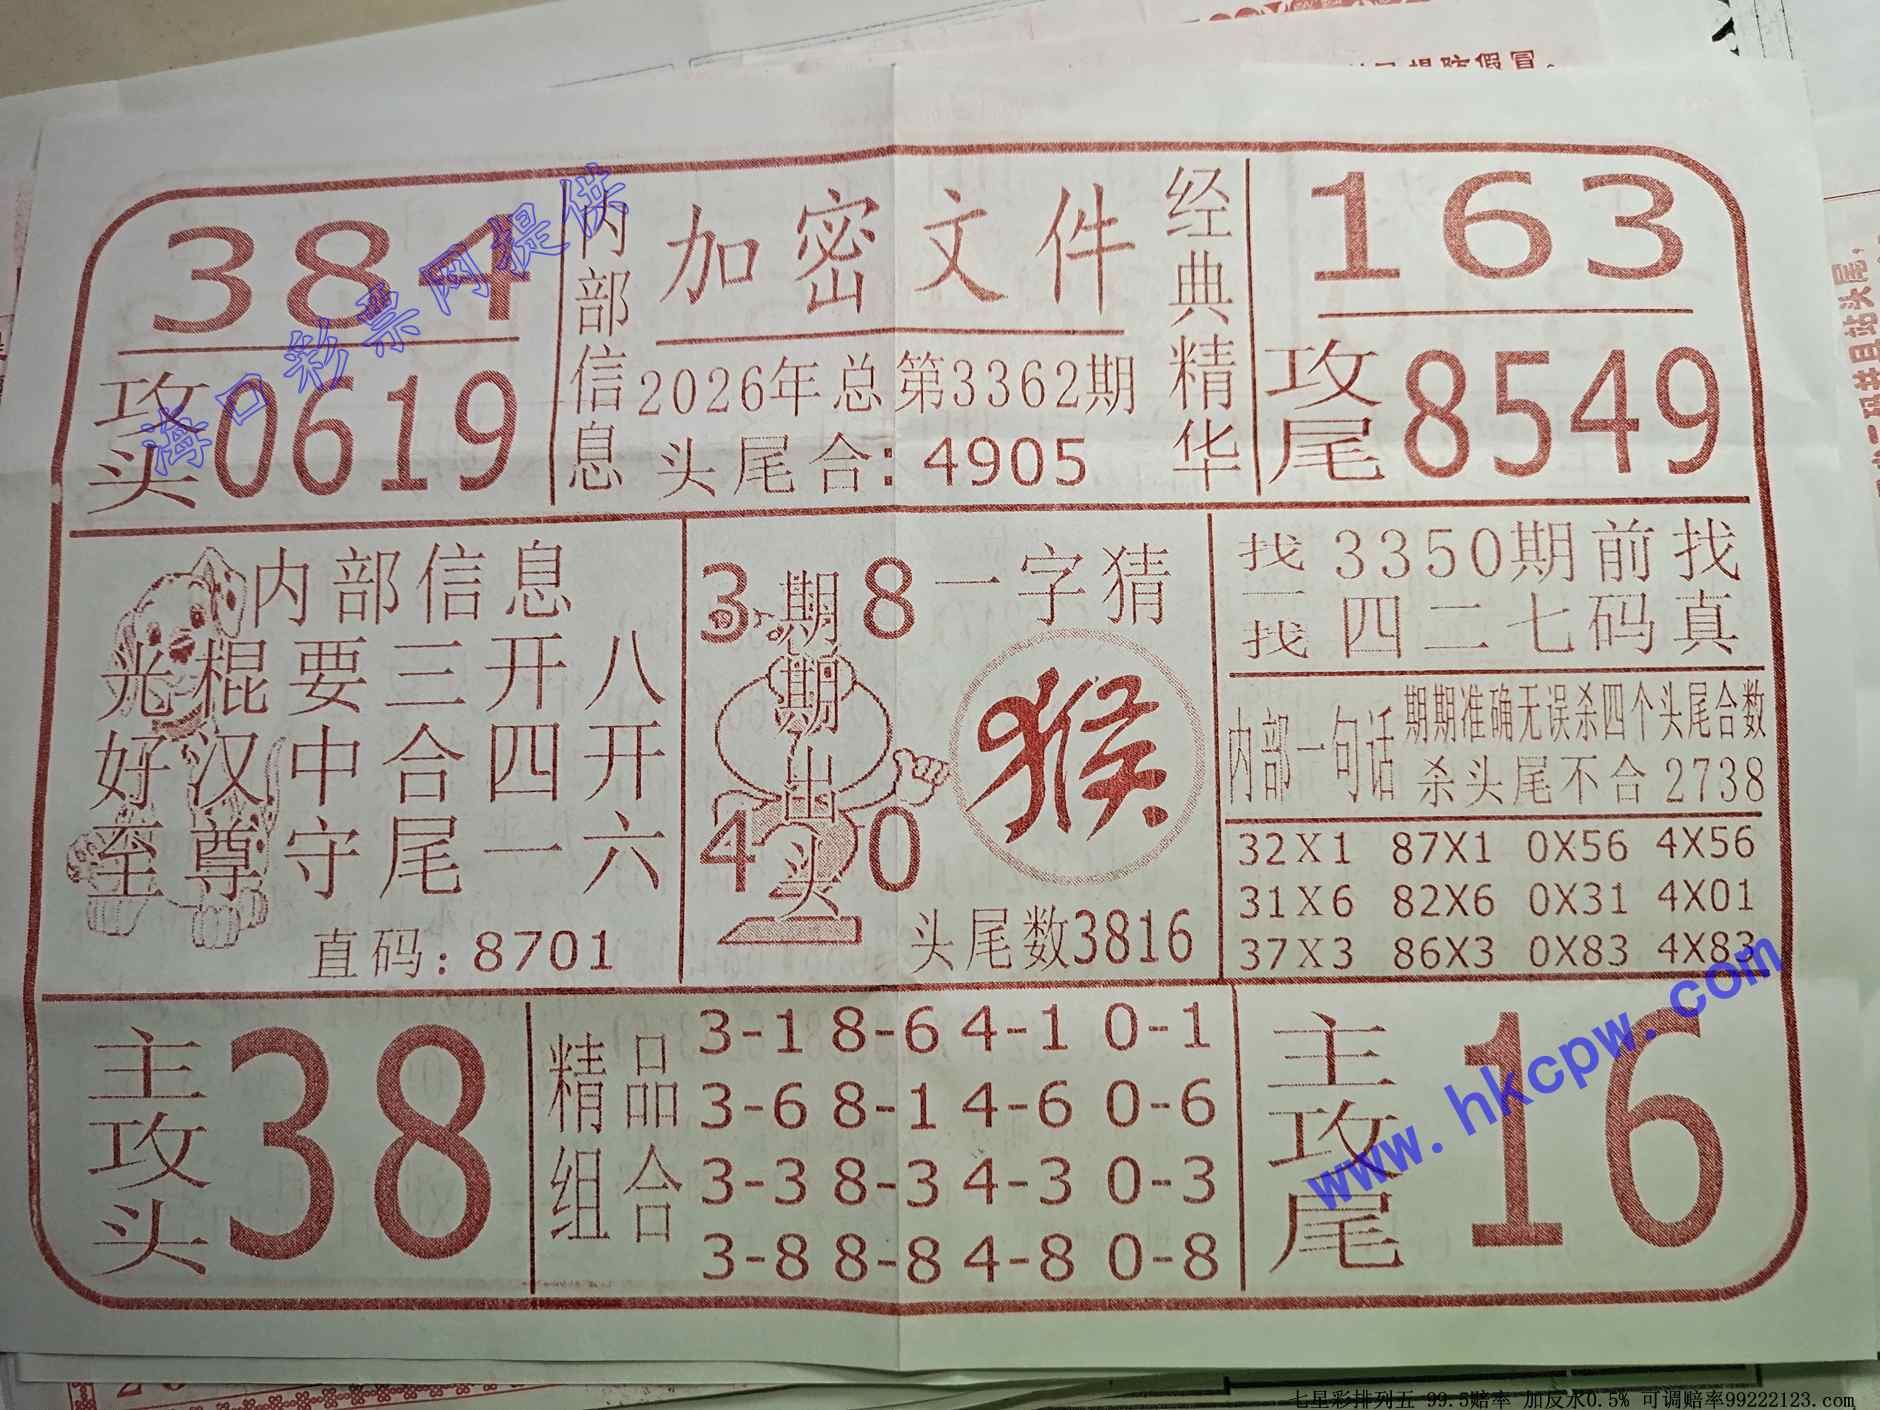 揭防假冒。
384
攻头0619
内部信息
加密文件
2026年总第3362期
头尾合:4905
经典精华
163
攻尾8549
内部信息
光棍要三开八
好汉中合四开
至尊守尾一六
直码:8701
3 8
4 0
期期出头
一字猜
猴
头尾数3816
找一找
3350期前找
四二七码真
内部一句话
期期准确无误杀四个头尾合数
杀头尾不合2738
32X1 87X1 0X56 4X56
31X6 82X6 0X31 4X01
37X3 86X3 0X83 4X83
主攻头
38
精品组合
3-1 8-6 4-1 0-1
3-6 8-1 4-6 0-6
3-3 8-3 4-3 0-3
3-8 8-8 4-8 0-8
主攻尾
16
海口彩票网提供
www.hkcpw.com
七星彩排列五 99.5赔率 加反水0.5% 可调赔率99222123.com